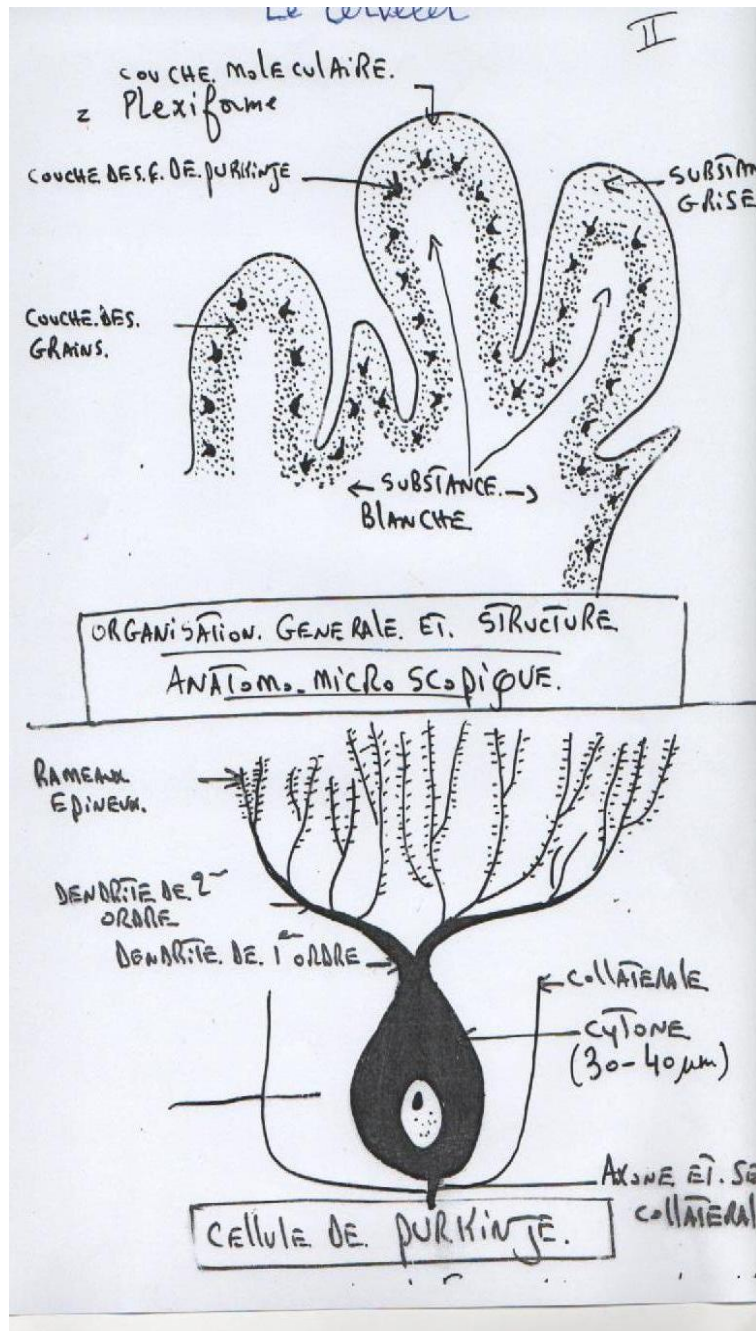 Le Cervelet
II
COUCHE. MOLECULAIRE.
= Plexiforme
COUCHE.DES.C.DE.PURKINJE
SUBSTAN
GRISE
COUCHE.DES.
GRAINS.
← SUBSTANCE. →
BLANCHE
ORGANISATION. GENERALE. ET. STRUCTURE
ANATOMO. MICROSCOPIQUE.
RAMEAUX
EPINEUX.
DENDRITE DE 2
ORDRE
DENDRITE. DE. 1er ORDRE
COLLATERALE
CYTONE
(30-40 µm)
AXONE ET. SE
COLLATERAL
CELLULE DE. PURKINJE.